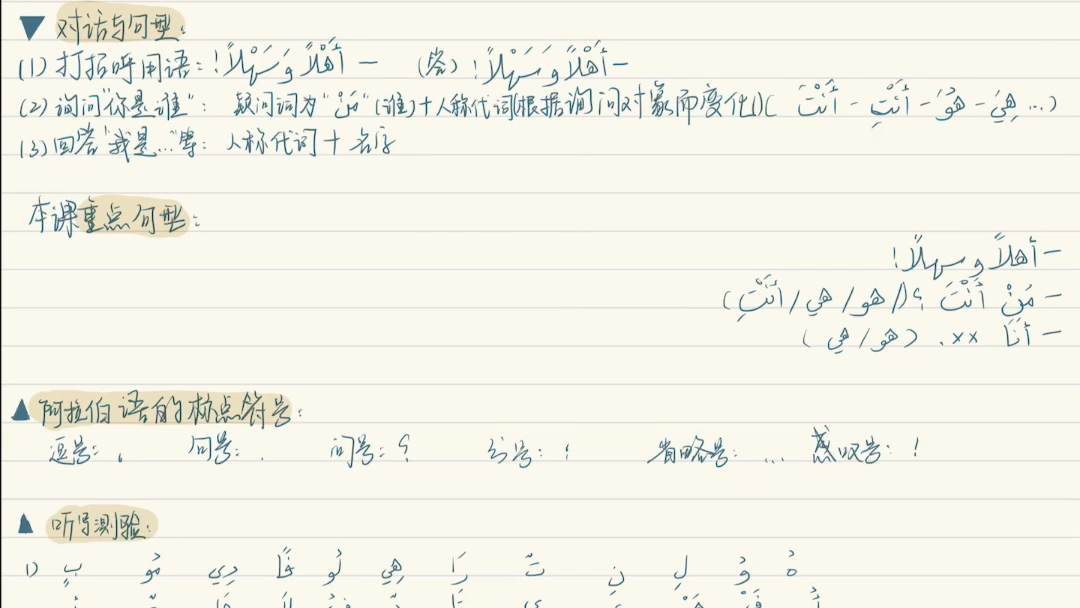 ▼ 对话与句型:
(1) 打招呼用语: أَهْلاً وَسَهْلاً! — (答) أَهْلاً وَسَهْلاً! —
(2) 询问"你是谁": 疑问词为"مَنْ"(谁)+人称代词(根据询问对象而变化)( أَنْتَ - أَنْتِ - هُوَ - هِيَ ...)
(3) 回答"我是..."等: 人称代词 + 名字
本课重点句型:
— أهلاً وسهلاً!
— مَنْ أَنْتَ ؟(/هو/هي/أَنْتِ)
— أَنَا xx. (هو/هي)
▲ 阿拉伯语的标点符号:
逗号: ، 句号: . 问号: ؟ 分号: ؛ 省略号: ... 感叹号: !
▲ 听写测验:
1) هُ وُ لِ نِ تٌ رَا هِي لُو خًا دِي مُو بٍ